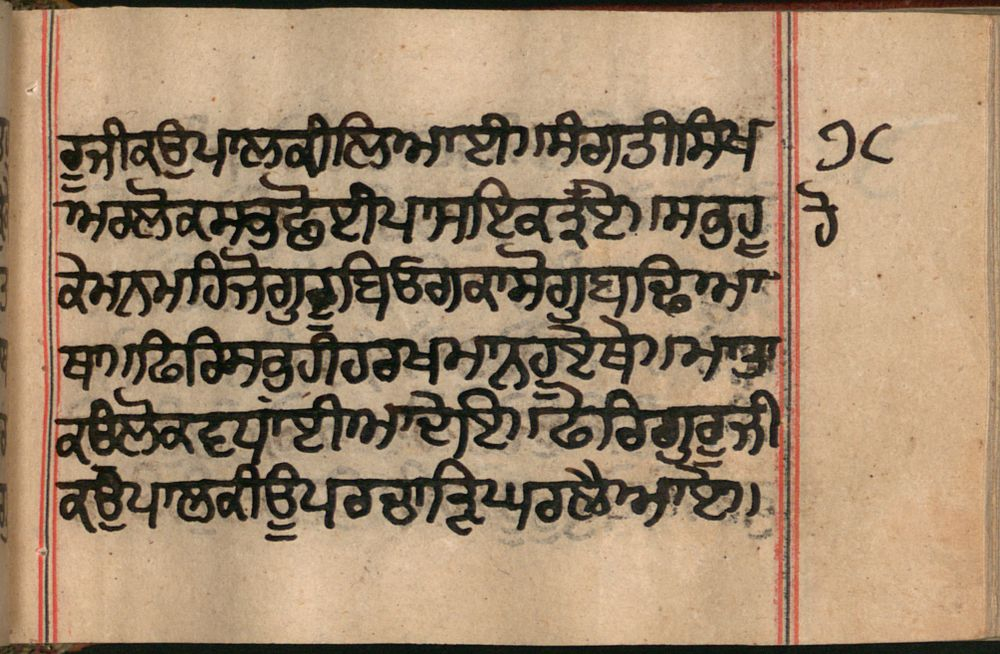 ਰੂ ਜੀ ਕਉ ਪਾਲਕੀ ਲਿਆਈ॥ ਸੰਗਤੀ ਸਿਖ ੧੮
ਅਰ ਲੋਕ ਸਭੁ ਢੋਈ ਪਾਸ ਇਕਤ੍ਰ ਹੋਏ॥ ਸਭੁ ਹੂ
ਕੇ ਮਨ ਮਹਿ ਜੋ ਗੁਰੂ ਬਿਓਗ ਕਾ ਸੋਗੁ ਬਾਢਿਆ
ਥਾ॥ ਫਿਰਿ ਸਭੁ ਹੀ ਹਰਖਮਾਨ ਹੂਏ ਥੇ॥ ਮਾਤਾ
ਕਉ ਲੋਕ ਵਧਾਈਆ ਦੇਇ॥ ਫੇਰਿ ਗੁਰੂ ਜੀ
ਕਉ ਪਾਲਕੀ ਊਪਰ ਚਾੜਿ ਘਰ ਲੈ ਆਏ॥